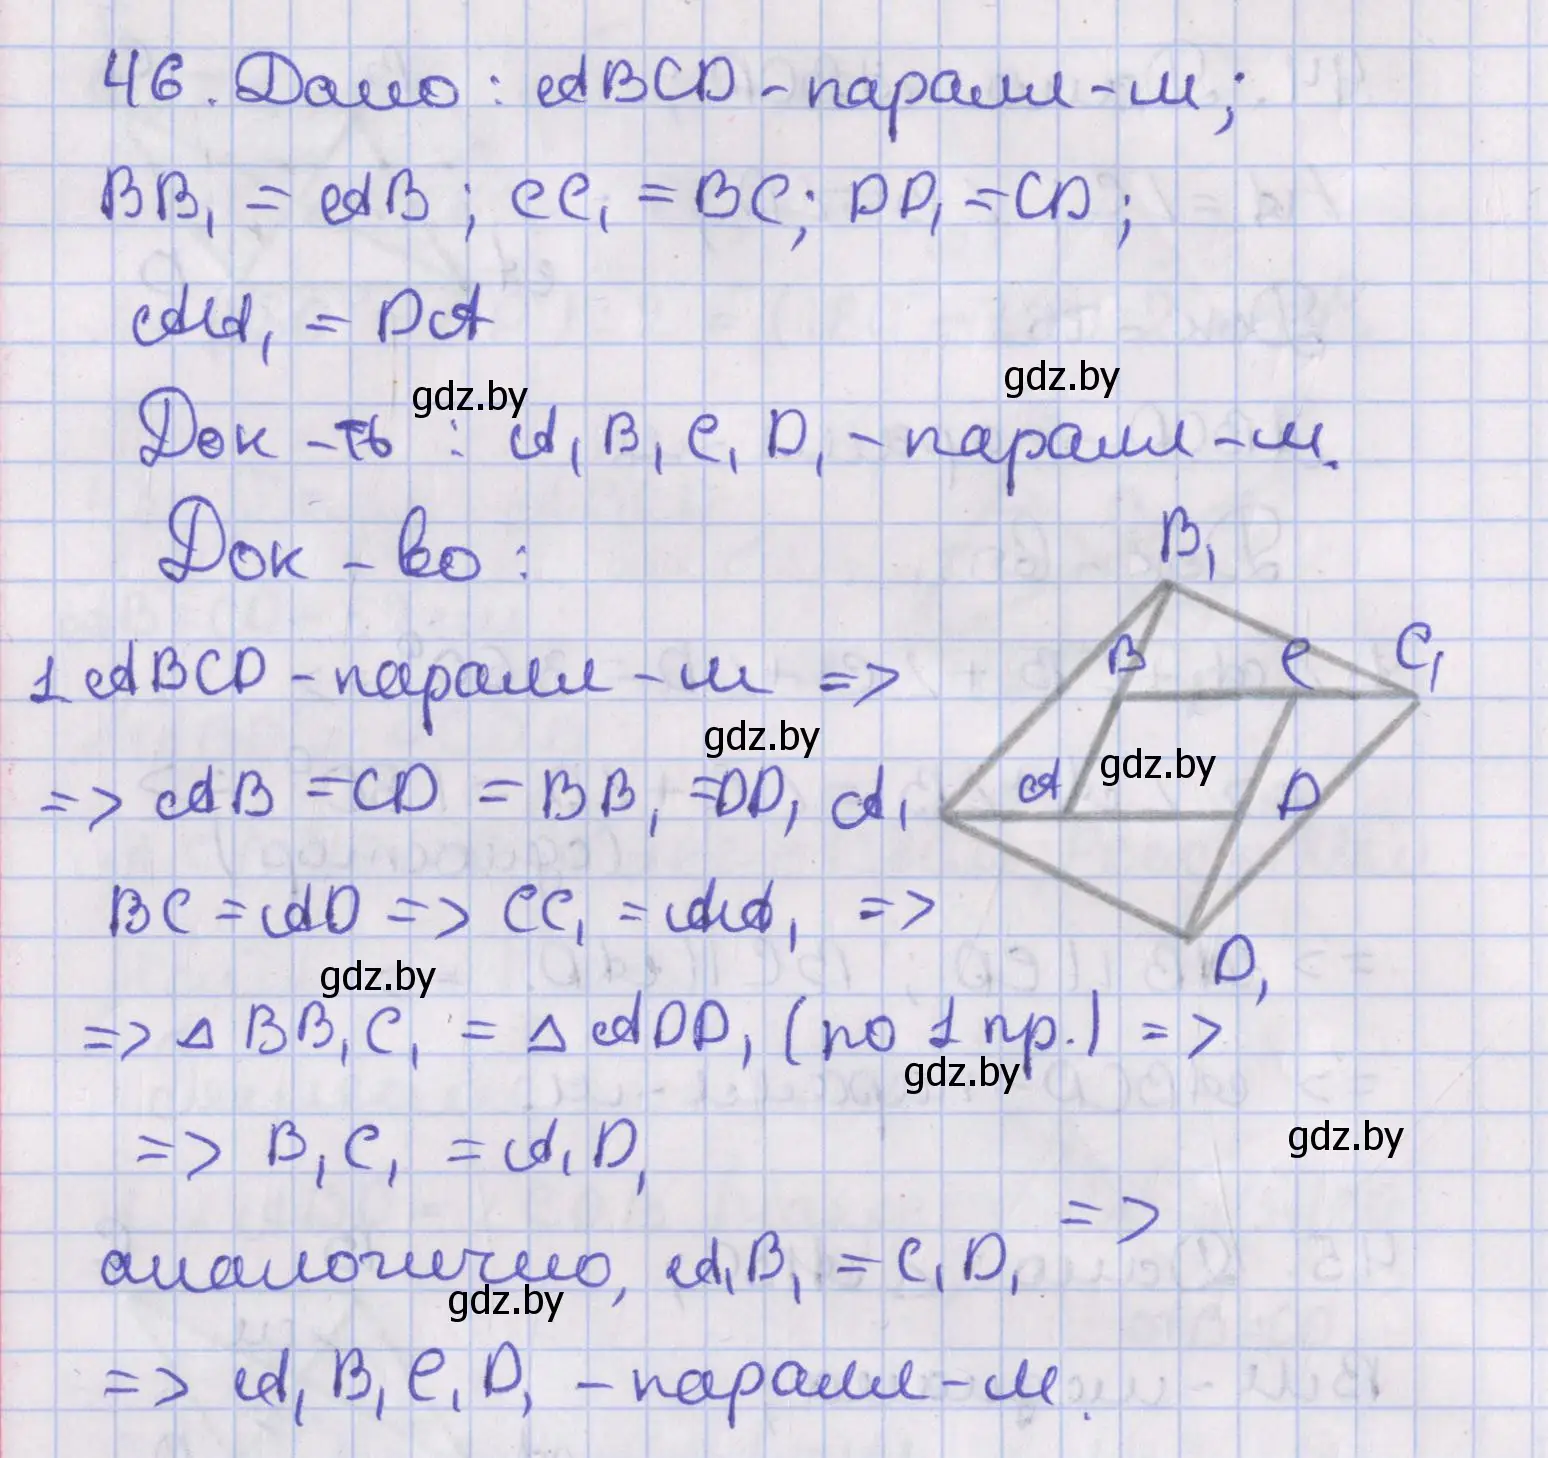 46. Дано: ABCD - паралл-м;
BB₁ = AB; CC₁ = BC; DD₁ = CD;
AA₁ = DA
gdz.by
gdz.by
Док-ть: A₁B₁C₁D₁ - паралл-м.
Док-во:
B₁
1 ABCD - паралл-м =>
B C C₁
gdz.by
gdz.by
=> AB = CD = BB₁ = DD₁
A₁ A D
BC = AD => CC₁ = AA₁ =>
gdz.by
D₁
=> △ BB₁C₁ = △ ADD₁ (по 1 пр.) =>
gdz.by
=> B₁C₁ = A₁D₁
gdz.by
аналогично, A₁B₁ = C₁D₁ =>
gdz.by
=> A₁B₁C₁D₁ - паралл-м.